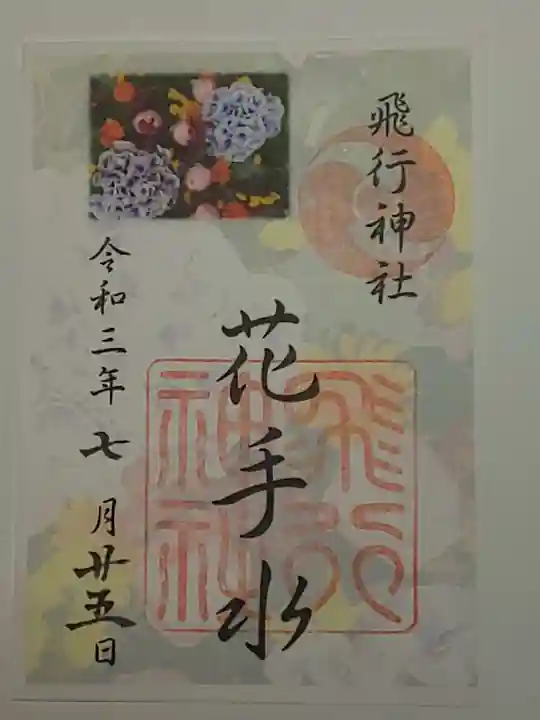 飛行神社
花手水
飛行神社
令和三年七月廿五日